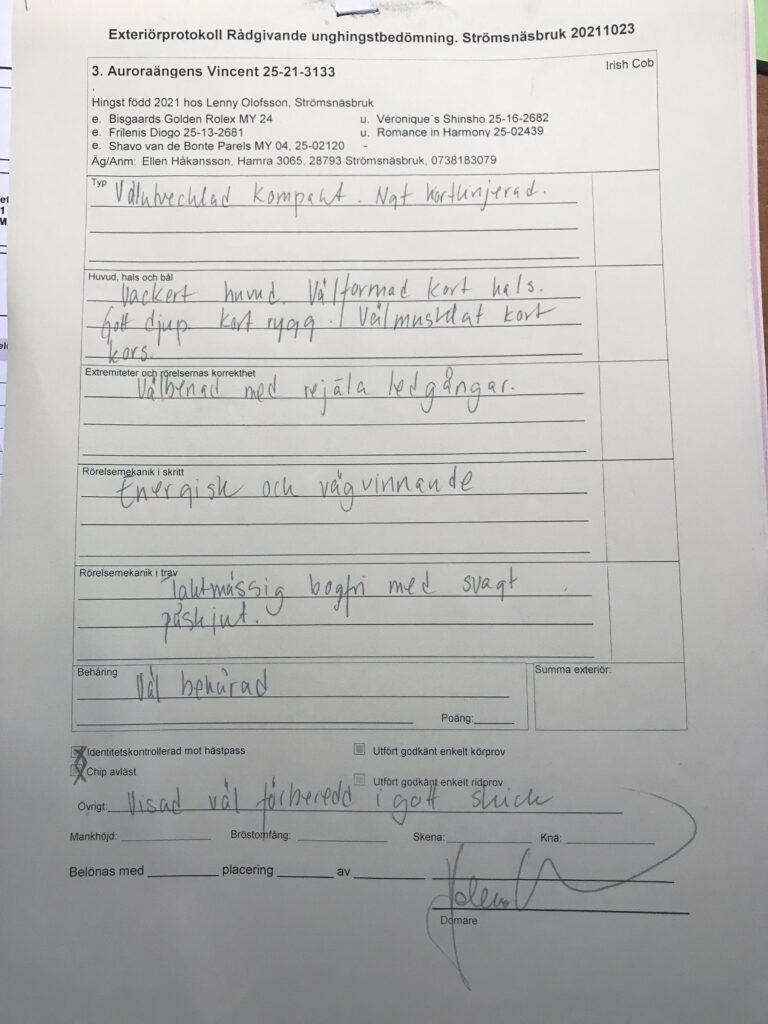 Exteriörprotokoll Rådgivande unghingstbedömning. Strömsnäsbruk 20211023
3. Auroraängens Vincent 25-21-3133
Irish Cob
Hingst född 2021 hos Lenny Olofsson, Strömsnäsbruk
e. Bisgaards Golden Rolex MY 24 u. Véronique´s Shinsho 25-16-2682
e. Frilenis Diogo 25-13-2681 u. Romance in Harmony 25-02439
e. Shavo van de Bonte Parels MY 04, 25-02120 -
Äg/Anm: Ellen Håkansson, Hamra 3065, 28793 Strömsnäsbruk, 0738183079
Typ
Välutvecklad kompakt. Ngt kortlinjerad.
Huvud, hals och bål
Vackert huvud. Välformad kort hals.
Gott djup kort rygg. Välmusklat kort
kors.
Extremiteter och rörelsernas korrekthet
Välbenad med rejäla ledgångar.
Rörelsemekanik i skritt
Energisk och vägvinnande
Rörelsemekanik i trav
Taktmässig bogfri med svagt
påskjut.
Behåring
Väl behårad
Poäng:
Summa exteriör:
Identitetskontrollerad mot hästpass
Utfört godkänt enkelt körprov
Chip avläst
Utfört godkänt enkelt ridprov
Övrigt: Visad väl förberedd i gott skick
Mankhöjd: Bröstomfång: Skena: Knä:
Belönas med placering av
Domare